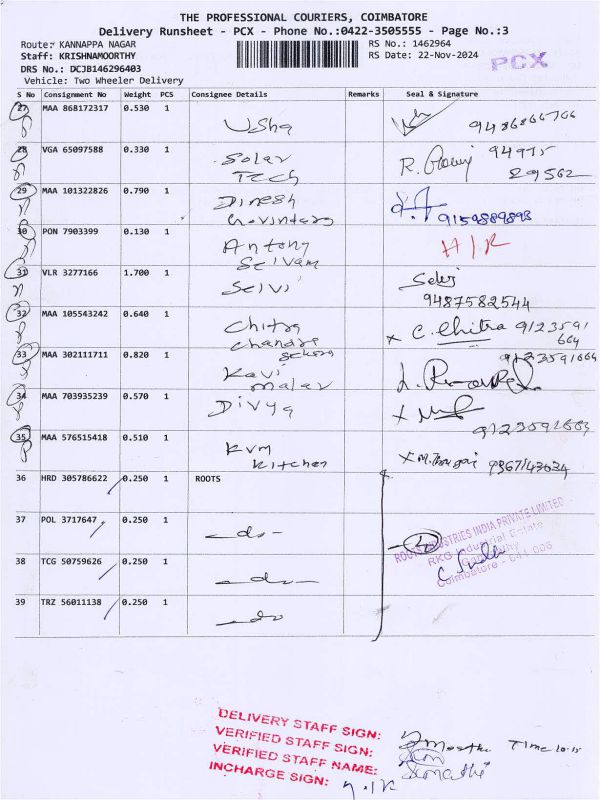 THE PROFESSIONAL COURIERS, COIMBATORE
Delivery Runsheet - PCX - Phone No.:0422-3505555 - Page No.:3
Route: KANNAPPA NAGAR
RS No.: 1462964
Staff: KRISHNAMOORTHY
RS Date: 22-Nov-2024
PCX
DRS No.: DCJB146296403
Vehicle: Two Wheeler Delivery
S No Consignment No Weight PCS Consignee Details Remarks Seal & Signature
27 MAA 868172317 0.530 1 Usha
28 VGA 65097588 0.330 1 Solar Tech 94975 29562
29 MAA 101322826 0.790 1 Dinesh 9159889893
30 PON 7903399 0.130 1 Antony Selvam
31 VLR 3277166 1.700 1 Selvi 9487582544
32 MAA 105543242 0.640 1 Chitra Chandra Sekara x C. Chitra 9123591 664
33 MAA 302111711 0.820 1 Kavi malar 9123591664
34 MAA 703935239 0.570 1 Divya
35 MAA 576515418 0.510 1 Kvm Kitchen
36 HRD 305786622 0.250 1 ROOTS
37 POL 3717647 0.250 1 -do-
38 TCG 50759626 0.250 1 -do-
39 TRZ 56011138 0.250 1 -do
ROOTS INDUSTRIES INDIA PRIVATE LIMITED
RKG Industrial Estate
Coimbatore - 641 006
DELIVERY STAFF SIGN:
VERIFIED STAFF SIGN: Time 10.15
VERIFIED STAFF NAME:
INCHARGE SIGN: